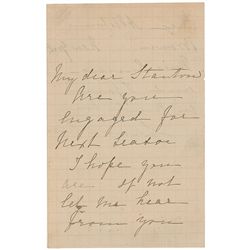 My dear Stanton
Are you
engaged for
next season
I hope you
are if not
let me hear
from you